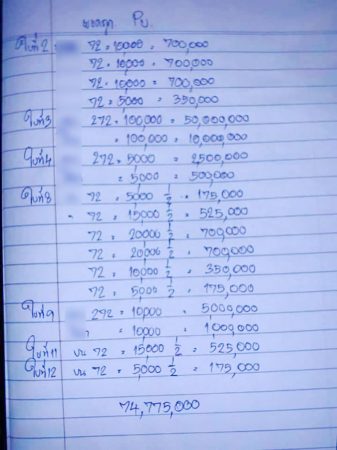 Pu.
ใบที่2 72 = 10000 = 700,000
72 = 10,000 = 700,000
72 = 10000 = 700,000
72 = 5000 = 350,000
ใบที่3 272 = 100,000 = 50,000,000
= 100,000 = 10,000,000
ใบที่4 272 = 5000 = 2500,000
= 5000 = 500,000
ใบที่8 72 = 5000 1/2 = 175,000
72 = 15000 1/2 = 525,000
72 = 20000 1/2 = 700,000
72 = 20000 1/2 = 700,000
72 = 10000 1/2 = 350,000
72 = 5000 1/2 = 175,000
ใบที่9 292 = 10,000 = 5000,000
= 10,000 = 1,000,000
ใบที่11 บน 72 = 15,000 1/2 = 525,000
ใบที่12 บน 72 = 5,000 1/2 = 175,000
74,775,000